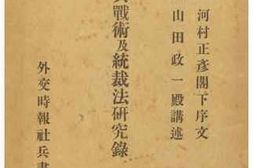 河村正彦閣下序文
山田政一殿講述
戰術及統裁法硏究錄
外交時報社兵書